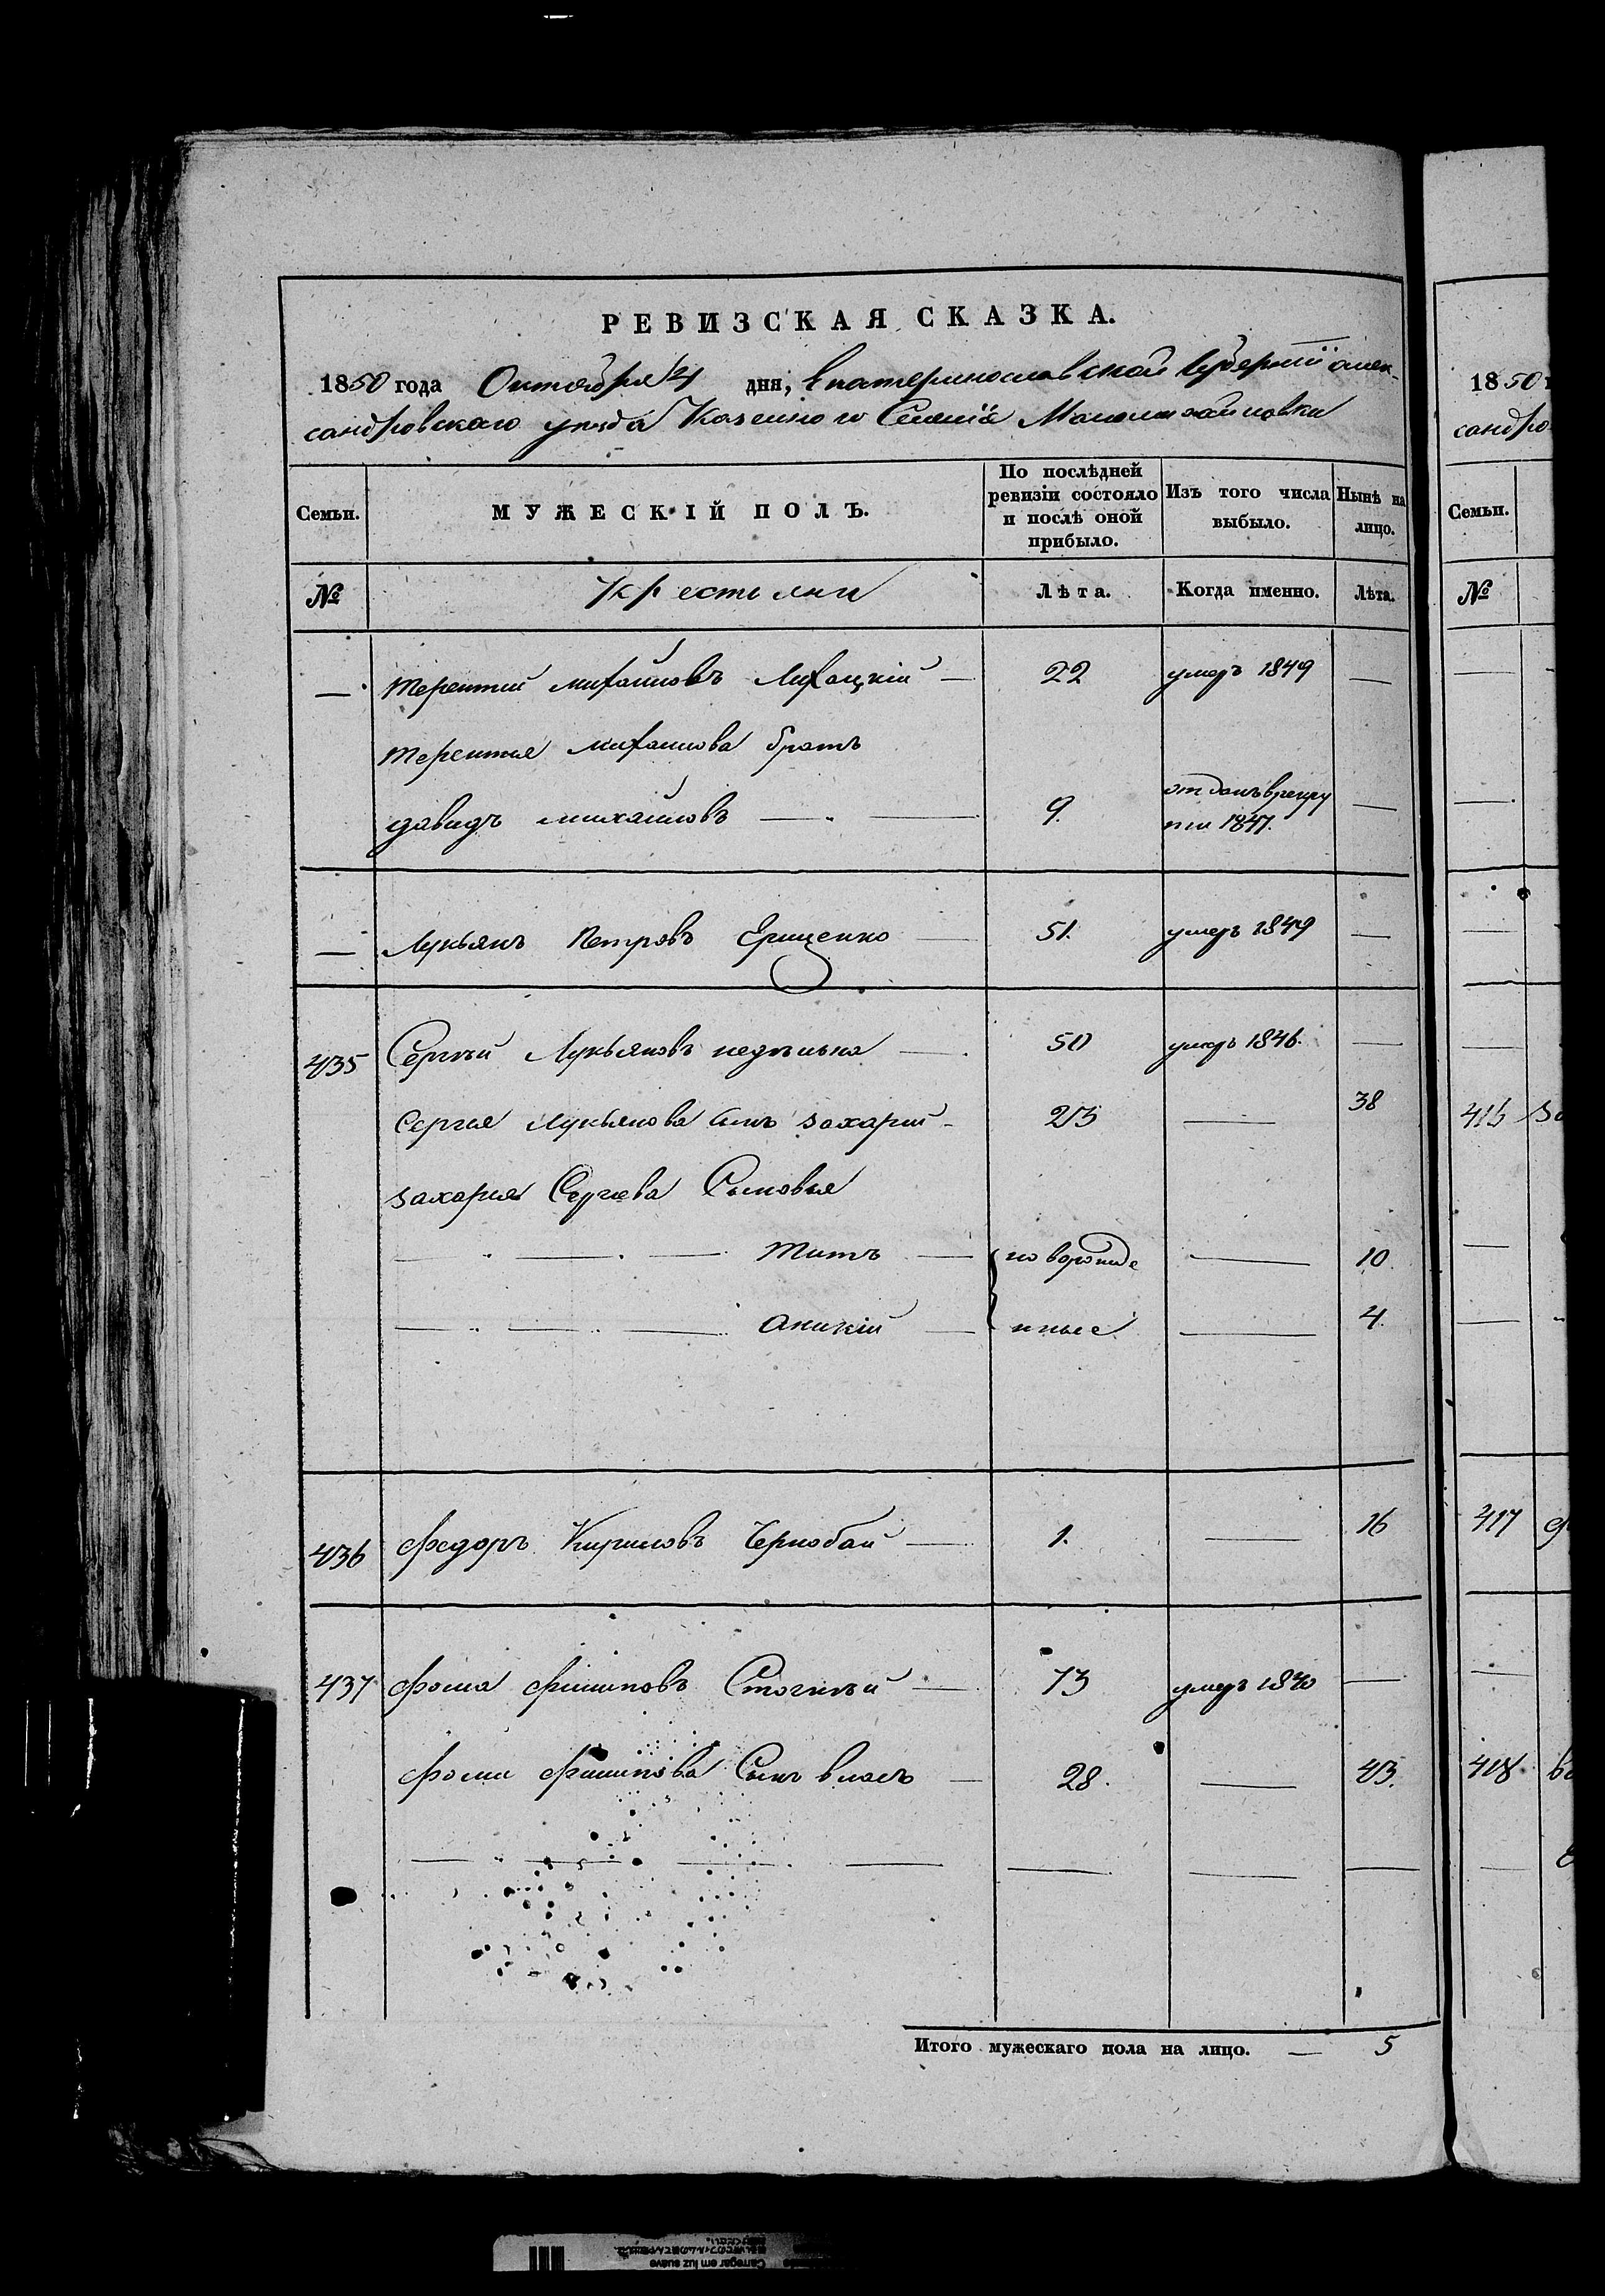 РЕВИЗСКАЯ СКАЗКА.
1850 года Октября 4 дня, Екатеринославской Губерніи алек-
сандровского уезда Казенного Селенія
Семьи. МУЖЕСКІЙ ПОЛЪ. По послѣдней ревизіи состояло и послѣ оной прибыло. Изъ того числа выбыло. Нынѣ на лицо.
№ Крестьяни Лѣта. Когда именно. Лѣта.
— Терентий михайловъ — 22 умеръ 1849 —
Терентия михаилова братъ
давидъ михаиловъ — 9. отданъ в рекру
ти 1847. —
— Лукьянъ Петровъ Грищенко — 51. умеръ 1849 —
435 Сергѣй Лукьяновъ недѣлька — 50 умеръ 1846. —
Сергея Лукьянова сынъ захарий - 23 — 38
захария Сергеева Сыновья
Титъ — новорожде — 10.
Аникій — нные — 4.
436 Федоръ Кириловъ Чернобай — 1. — 16
437 Фома Филиповъ Стогний — 73 умеръ 1840 —
Фоми Филипова Сынъ власъ — 28. — 43.
Итого мужескаго пола на лицо. — 5
1850
сандро
Семьи.
№
415 за
417
418